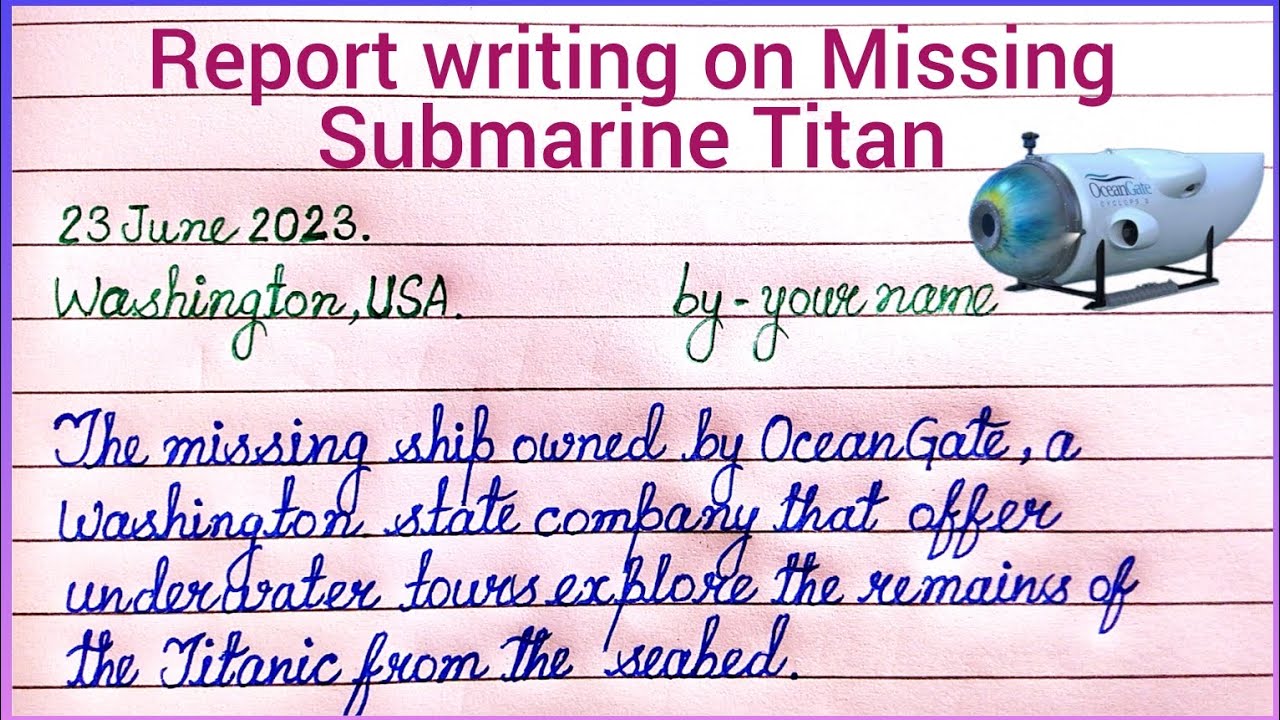 Report writing on Missing
Submarine Titan
OceanGate
CYCLOPS 2
23 June 2023.
Washington, USA.
by - your name
The missing ship owned by OceanGate, a
Washington state company that offer
underwater tours explore the remains of
the Titanic from the seabed.